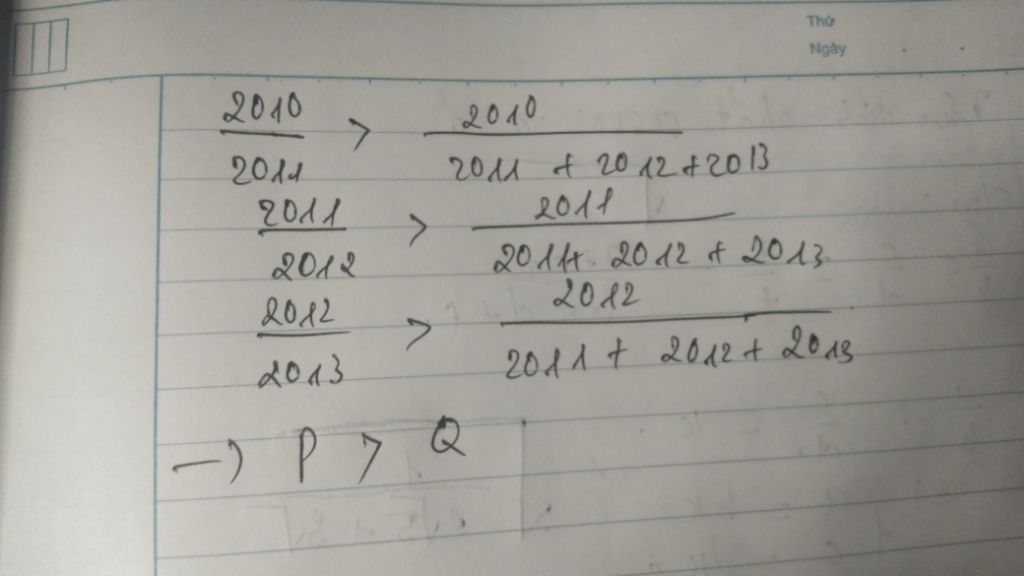 Thứ
Ngày
2010/2011 > 2010/(2011 + 2012 + 2013)
2011/2012 > 2011/(2011 + 2012 + 2013)
2012/2013 > 2012/(2011 + 2012 + 2013)
→ P > Q